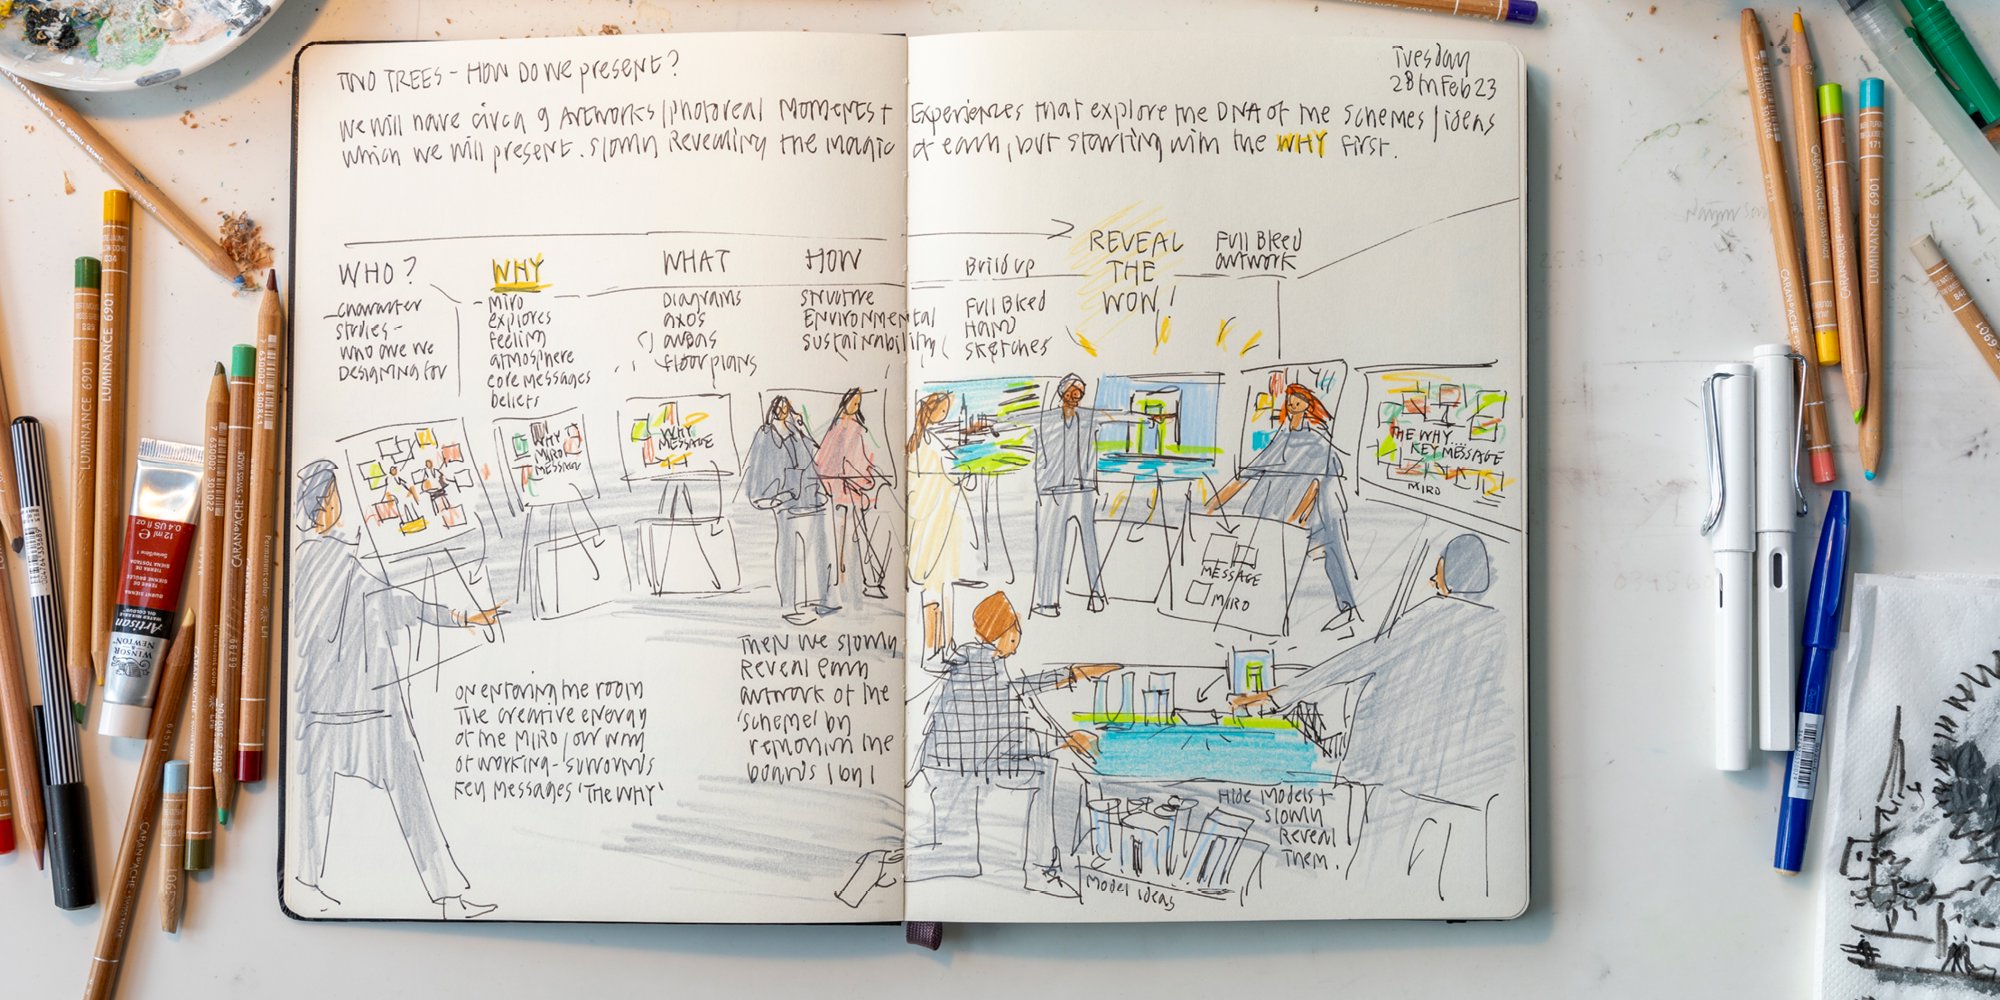 TWO TREES - HOW DO WE present?
Tuesday
28th Feb 23
We will have circa 9 Artworks/photoreal Moments + Experiences that explore the DNA of the schemes/ideas
which we will present. slowly Revealing the magic of each, but starting with the WHY first.
WHO?
character
studies -
who are we
Designing for
WHY
- Miro
explores
feeling
atmosphere
core messages
beliefs
WHAT
Diagrams
axo's
areas
floor plans
HOW
structure
Environmental
sustainability
Build up
Full Bleed
Hand
sketches
REVEAL
THE
WOW!
Full Bleed
artwork
WHY
MIRO
MESSAGE
WHY
MESSAGE
THE WHY...
KEY MESSAGE
MIRO
MESSAGE
MIRO
on entering the room
The creative energy
of the MIRO/our way
of working - surrounds
key messages 'THE WHY'
Then we slowly
Reveal each
artwork of the
'scheme' by
removin the
boards 1 by 1
Hide Models +
slowly
Reveal
Them.
Model ideas
LUMINANCE 6901
LUMINANCE 6901
CARAN D'ACHE
LUMINANCE 6901
12 ml e 0.4 US fl oz
BURNT SIENNA
Artisan
WATER MIXABLE
OIL COLOUR
WINSOR
& NEWTON